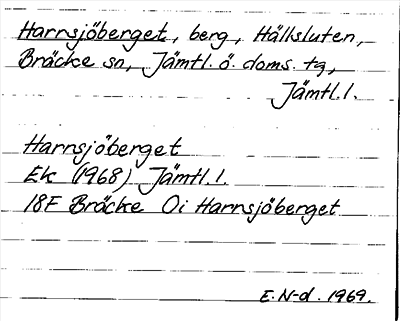 Harrsjöberget, berg, Hällsluten,
Bräcke sn, Jämtl. ö. doms. tg,
Jämtl. l.
Harrsjöberget
Ek (1968) Jämtl. l.
18F Bräcke 0i Harrsjöberget
E. N-d. 1969.